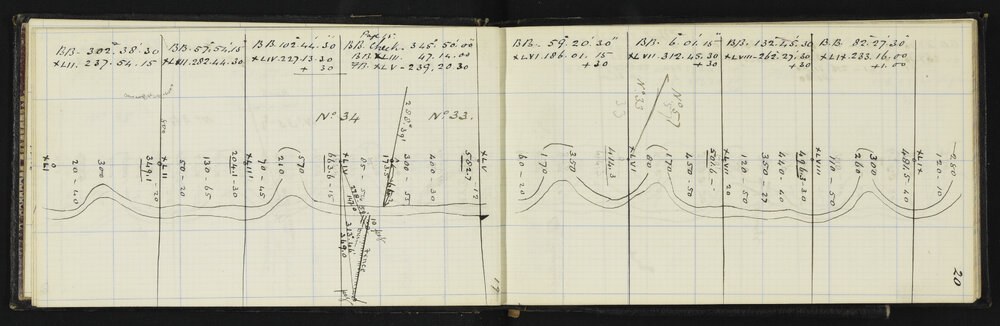 BB. 302° 38' 30
XLII. 237. 54. 15
BB. 57° 54' 15"
XLIII. 282. 44. 30
BB 102° 44' 30
XLIV. 227. 13. 30
+ 30
BB. Check. 345° 50' 00"
BB. XLIII. 47. 14. 00
FB. XLV - 239. 20. 30
BB. 59° 20' 30"
XLVI. 186. 01. 15
+30
BB. 6° 01' 15"
XLVII. 312. 45. 30
+ 30
BB. 132° 45' 30
XLVIII - 262. 27. 30
+ 30
BB. 82° 27' 30
XLIX. 233. 16. 00
+1. 00
No 34
No 33.
No 33
No 57
XLI
20 - 40
300
349.1
XLII
20
50 - 20
130 - 65
204.1 - 30
XLIII
90 - 45
210
(570
663.6 - 15
XLIV
300 - 55
400 - 30
502.7
XLV
12
peg
fence
60 - 20
(170
(350
414.3
XLVI
80
(170
450 - 50
501.6 -
XLVII
20
120 - 50
350 - 27
440 - 40
496.3 - 30
XLVIII
110 - 50
260
(300
487.5 - 40
XLIX
120 - 10
260
17
20